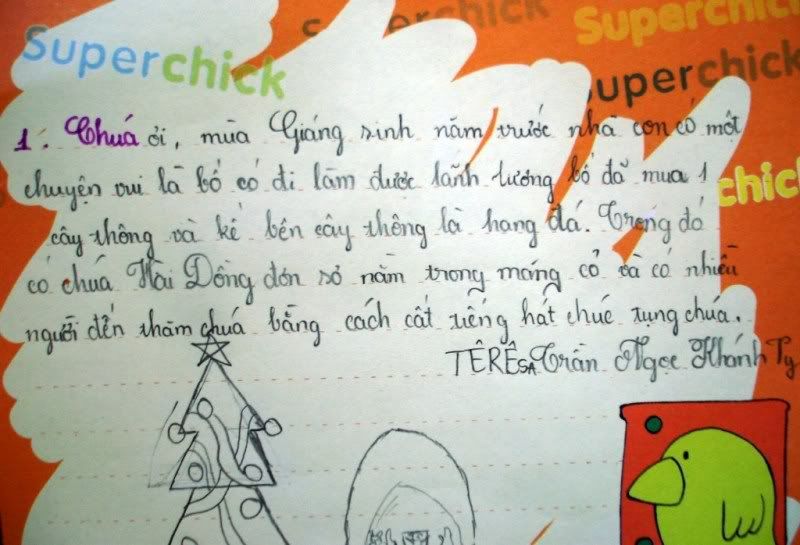 Superchick
Superchick
Superchick
Superchick
chic
1. Chuá ơi, mùa Giáng sinh năm trước nhà con có một
chuyện vui là bố có đi làm được lãnh lương bố đã mua 1
cây thông và kế bên cây thông là hang đá. Trong đó
có chuá Hài Đồng đơn sơ nằm trong máng cỏ và có nhiều
người đến thăm chuá bằng cách cất tiếng hát chúc tụng chuá.
TÊRÊSA Trần Ngọc Khánh Ty